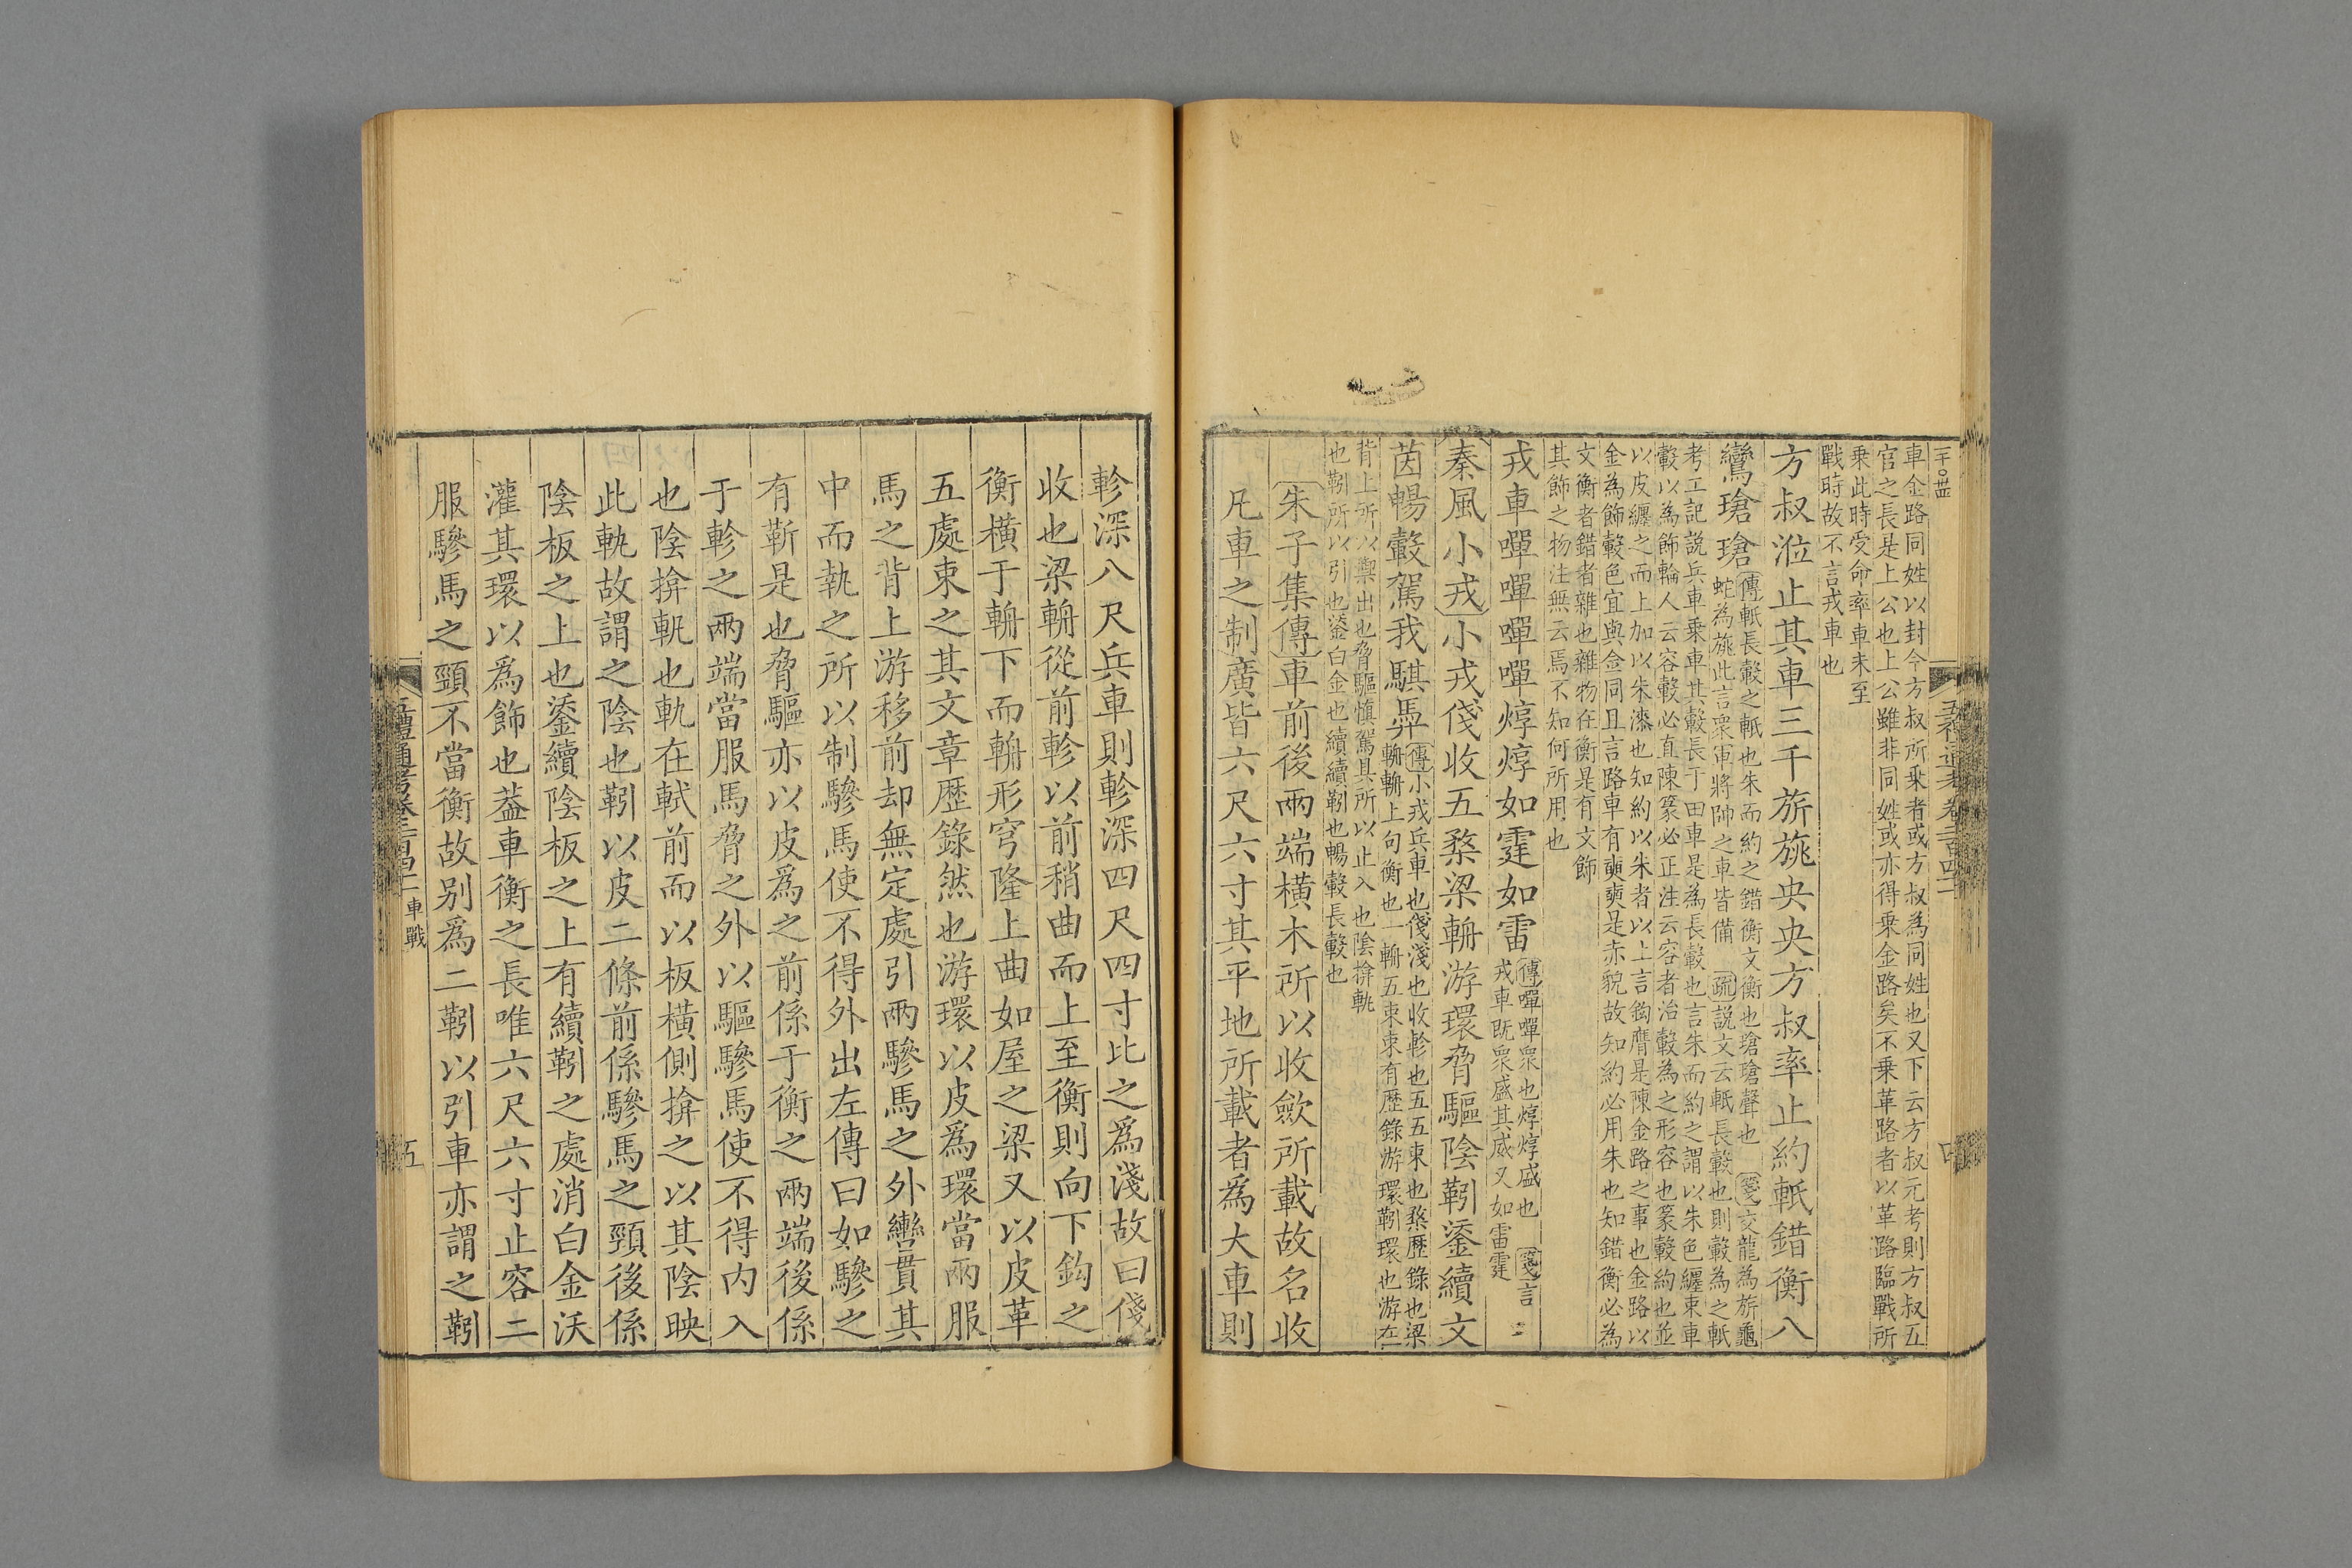 車金路同姓以封今方叔所乗者或方叔為同姓也又下云方叔元考則方叔五
官之長是上公也上公雖非同姓或亦得乗金路矣不乗革路者以革路臨戰所
乗此時受命率車未至
戰時故不言戎車也
方叔涖止其車三千旂旐央央方叔率止約軝錯衡八
鸞瑲瑲
傳軝長轂之軝也朱而約之錯衡文衡也瑲瑲聲也 箋交龍為旂龜
蛇為旐此言衆軍將帥之車皆備 疏説文云軝長轂也則轂為之軝
考工記説兵車乗車其轂長于田車是為長轂也言朱而約之謂以朱色纏束車
轂以為飾輪人云容轂必直陳篆必正注云容者治轂為之形容也篆轂約也並
以皮纏之而上加以朱漆也知約以朱者以上言鉤膺是陳金路之事也金路以
金為飾轂色宜與金同且言路車有奭奭是赤貌故知約必用朱也知錯衡必為
文衡者錯者雜也雜物在衡是有文飾
其飾之物注無云焉不知何所用也
戎車嘽嘽嘽嘽焞焞如霆如雷
傳嘽嘽衆也焞焞盛也 箋言
戎車既衆盛其威又如雷霆
秦風小戎小戎俴收五楘梁輈游環脅驅陰靷鋈續文
茵暢轂駕我騏馵
傳小戎兵車也俴淺也收軫也五五束也楘歴錄也梁
輈輈上句衡也一輈五束束有歴錄游環靷環也游在
背上所以禦出也脅驅慎駕具所以止入也陰揜軓
也靷所以引也鋈白金也續續靷也暢轂長轂也
朱子集傳車前後兩端橫木所以收歛所載故名收
凡車之制廣皆六尺六寸其平地所載者為大車則
五禮通考卷二百四十二
四
軫深八尺兵車則軫深四尺四寸比之為淺故曰俴
收也梁輈從前軫以前稍曲而上至衡則向下鈎之
衡橫于輈下而輈形穹隆上曲如屋之梁又以皮革
五處束之其文章歴錄然也游環以皮為環當兩服
馬之背上游移前却無定處引兩驂馬之外轡貫其
中而執之所以制驂馬使不得外出左傳曰如驂之
有靳是也脅驅亦以皮為之前係于衡之兩端後係
于軫之兩端當服馬脅之外以驅驂馬使不得内入
也陰揜軓也軓在軾前而以板橫側揜之以其陰映
此軓故謂之陰也靷以皮二條前係驂馬之頸後係
陰板之上也鋈續陰板之上有續靷之處消白金沃
灌其環以為飾也葢車衡之長唯六尺六寸止容二
服驂馬之頸不當衡故别為二靷以引車亦謂之靷
五禮通考卷二百四十二 車戰
五